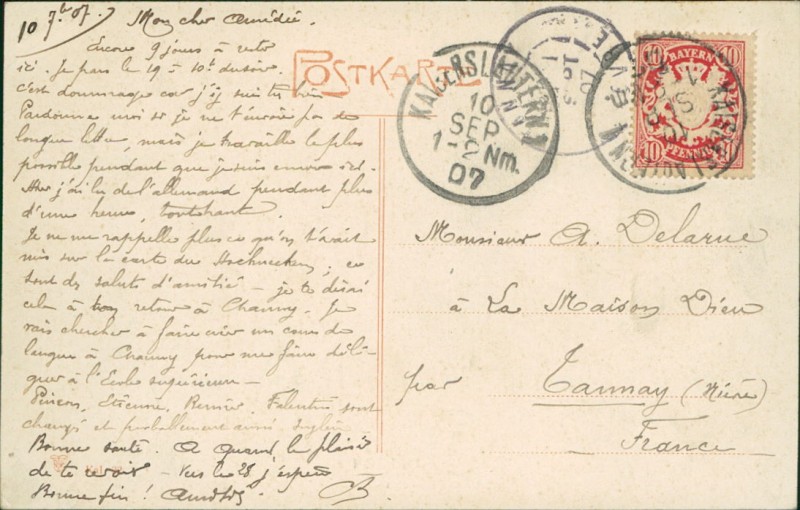 10 7bre 07. Mon cher Amédée.
Encore 9 jours à rester
ici. Je pars le 19 à 10h du soir.
c'est dommage car j'y suis très bien
Pardonne moi si je ne t'envoie pas de
longue lettre, mais je travaille le plus
possible pendant que je suis encore ici.
Hier j'ai lu de l'allemand pendant plus
d'une heure, tout haut.
Je ne me rappelle plus ce qu'on t'avait
mis sur la carte du ; ce
sont des saluts d'amitié - je te dirai
cela à ton retour à Chauny. Je
vais chercher à faire créer un cours de
langue à Chauny pour me faire délé-
guer à l'Ecole supérieure -
Pinçon, Etienne, Bernier, sont
changés et probablement aussi
Bonne santé. A quand le plaisir
de te revoir - Vers le 28 j'espère
Bonne fin! Amitiés.
POSTKARTE
KAISERSLAUTERN 1
10
SEP
1-2 Nm.
07
BAYERN
10 10
10 10
PFENNIG
Monsieur A. Delarue
à La Maison Dieu
par Tannay (Nièvre)
France